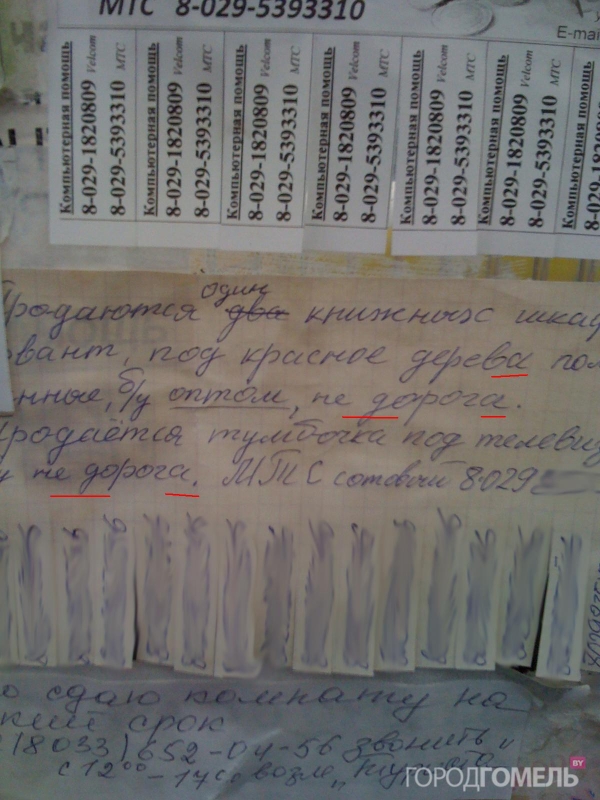 МТС 8-029-5393310
E-mai
Компьютерная помощь
8-029-1820809 Velcom
8-029-5393310 МТС
Компьютерная помощь
8-029-1820809 Velcom
8-029-5393310 МТС
Компьютерная помощь
8-029-1820809 Velcom
8-029-5393310 МТС
Компьютерная помощь
8-029-1820809 Velcom
8-029-5393310 МТС
Компьютерная помощь
8-029-1820809 Velcom
8-029-5393310 МТС
Компьютерная помощь
8-029-1820809 Velcom
8-029-5393310 МТС
Компьютерная помощь
один
родаются два книжных шкаф
вант, под красное дерева пол
нные, б/у оптом, не дорога.
родаётся тумбочка под телевиз
у не дорога. МТС сотовый 8.029
о сдаю комнату на
кий срок
(8033) 652-04-56 звонить
с 12 00 - 17 00 возле
ГОРОДГОМЕЛЬ BY